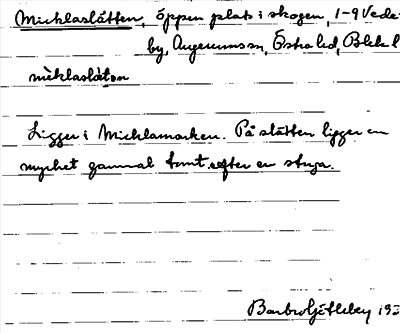 Micklaslätten, öppen plats i skogen, 1-9 Vede
by, Augerumssn, Östra hd, Blek l
mìcklaslä̀tən
Ligger i Micklamarken. På slätten ligger en
mycket gammal tomt efter en stuga.
Barbro Götleby 193